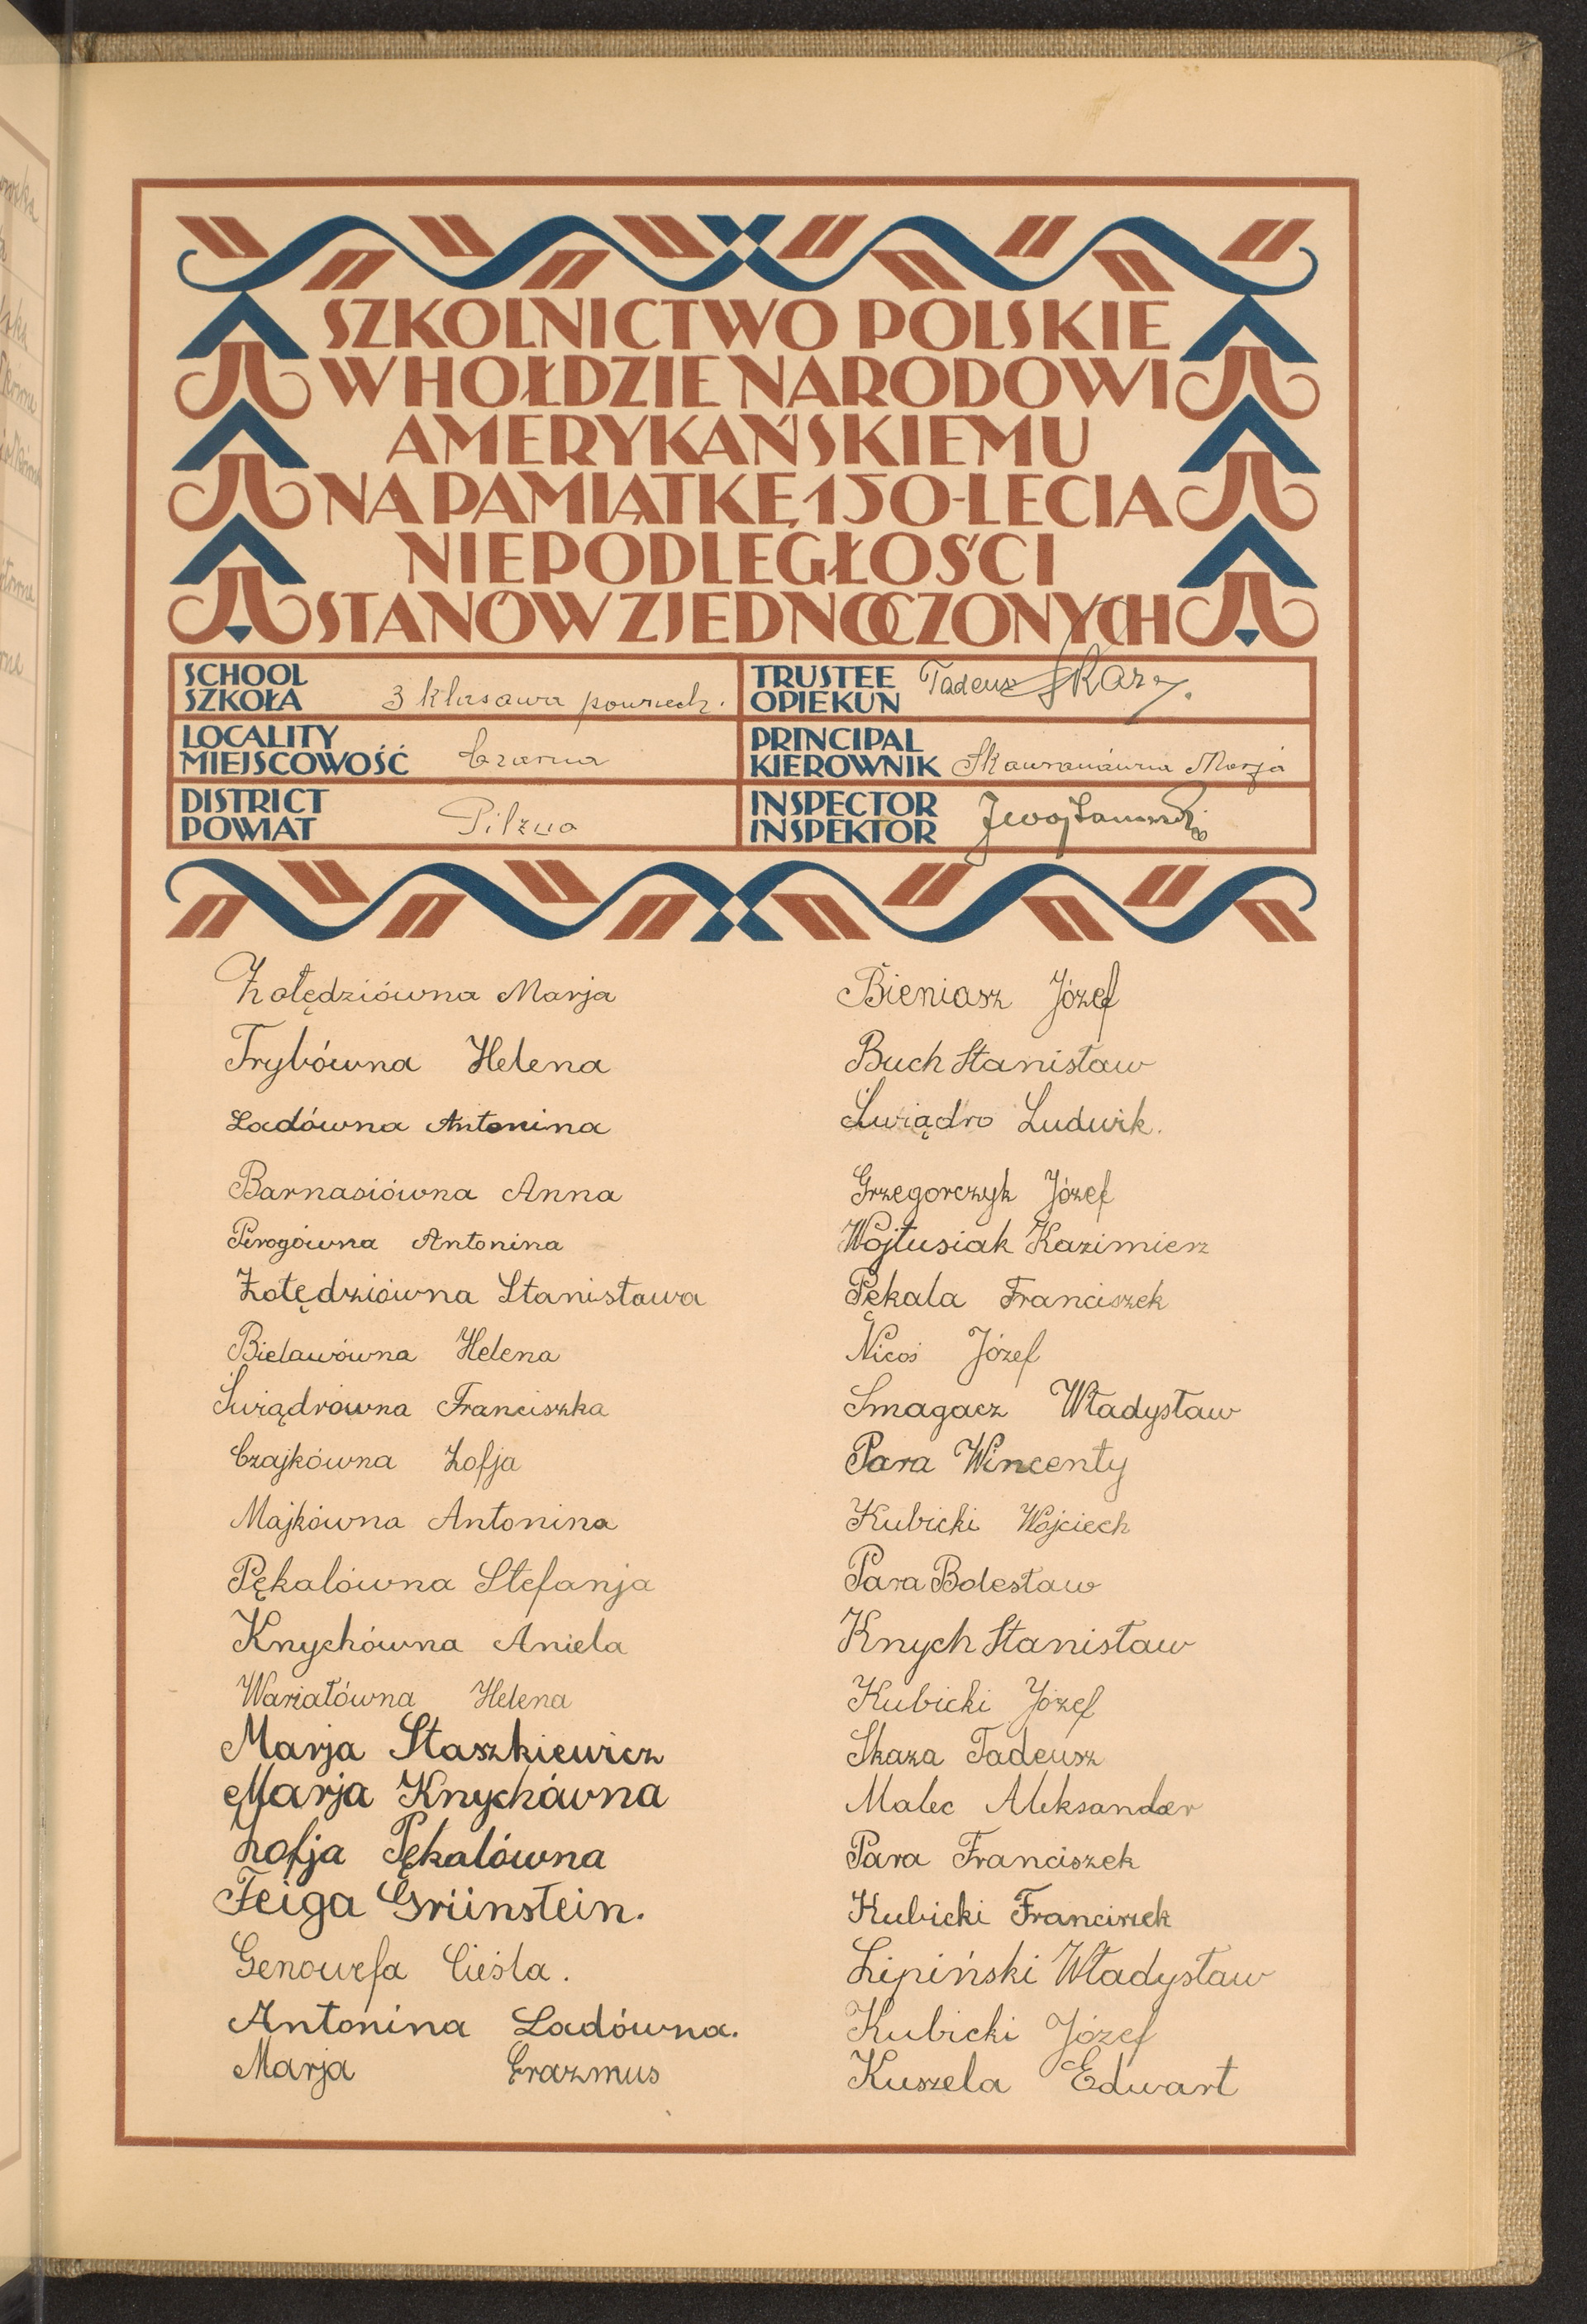 SZKOLNICTWO POLSKIE
W HOŁDZIE NARODOWI
AMERYKAŃSKIEMU
NA PAMIĄTKĘ 150-LECIA
NIEPODLEGŁOŚCI
STANÓW ZJEDNOCZONYCH
SCHOOL
SZKOŁA 3 klasowa powszech.
TRUSTEE
OPIEKUN Tadeusz
LOCALITY
MIEJSCOWOŚĆ Czarna
PRINCIPAL
KIEROWNIK Marja
DISTRICT
POWIAT Pilzno
INSPECTOR
INSPEKTOR
Żołędziówna Marja
Trybówna Helena
Ladówna Antonina
Barnasiówna Anna
Pirogówna Antonina
Żołędziówna Stanisława
Bielawówna Helena
Świądrówna Franciszka
Czajkówna Zofja
Majkówna Antonina
Pękalówna Stefanja
Knychówna Aniela
Wariatówna Helena
Marja Staszkiewicz
Marja Knychówna
Zofja Pękalówna
Feiga Grünstein.
Genowefa Cieśla.
Antonina Ladówna.
Marja Erazmus
Bieniasz Józef
Buch Stanisław
Świądro Ludwik.
Grzegorczyk Józef
Wojtusiak Kazimierz
Pękala Franciszek
Nicoś Józef
Smagacz Władysław
Para Wincenty
Kubicki Wojciech
Para Bolesław
Knych Stanisław
Kubicki Józef
Skaza Tadeusz
Malec Aleksander
Para Franciszek
Kubicki Franciszek
Lipiński Władysław
Kubicki Józef
Kuszela Edwart